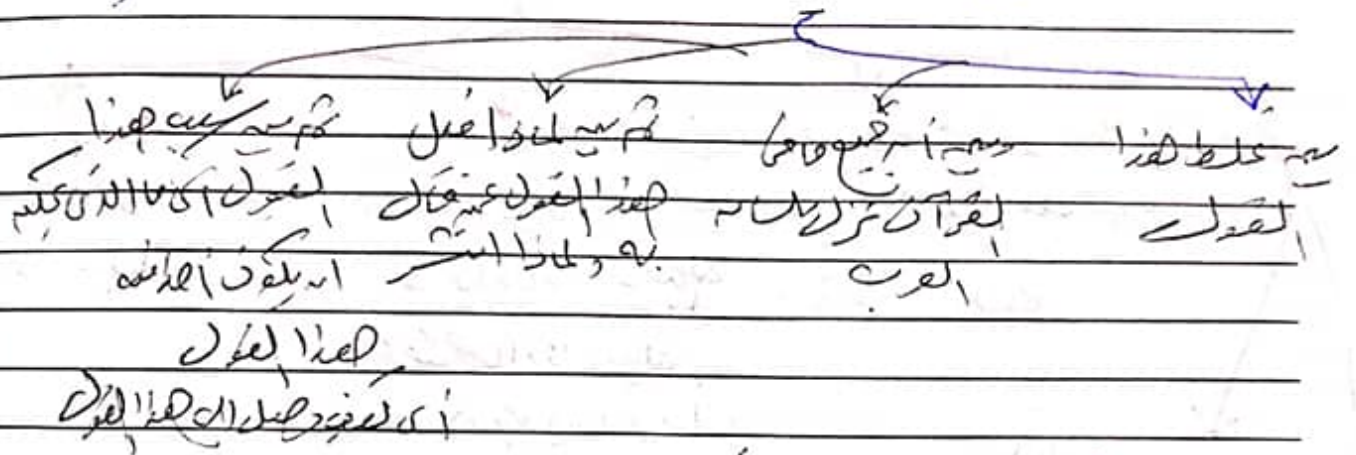 بين غلط هذا
القول
وبين أن جميع ما في
القرآن نزل بلسان
العرب
ثم بين لماذا قبل
هذا القول عن قال
به ولماذا انتشر
ثم بين سبب هذا
القول أي ما الذي يمكن
أن يكون أحدث
هذا القول
أي كيف وصل إلى هذا القول